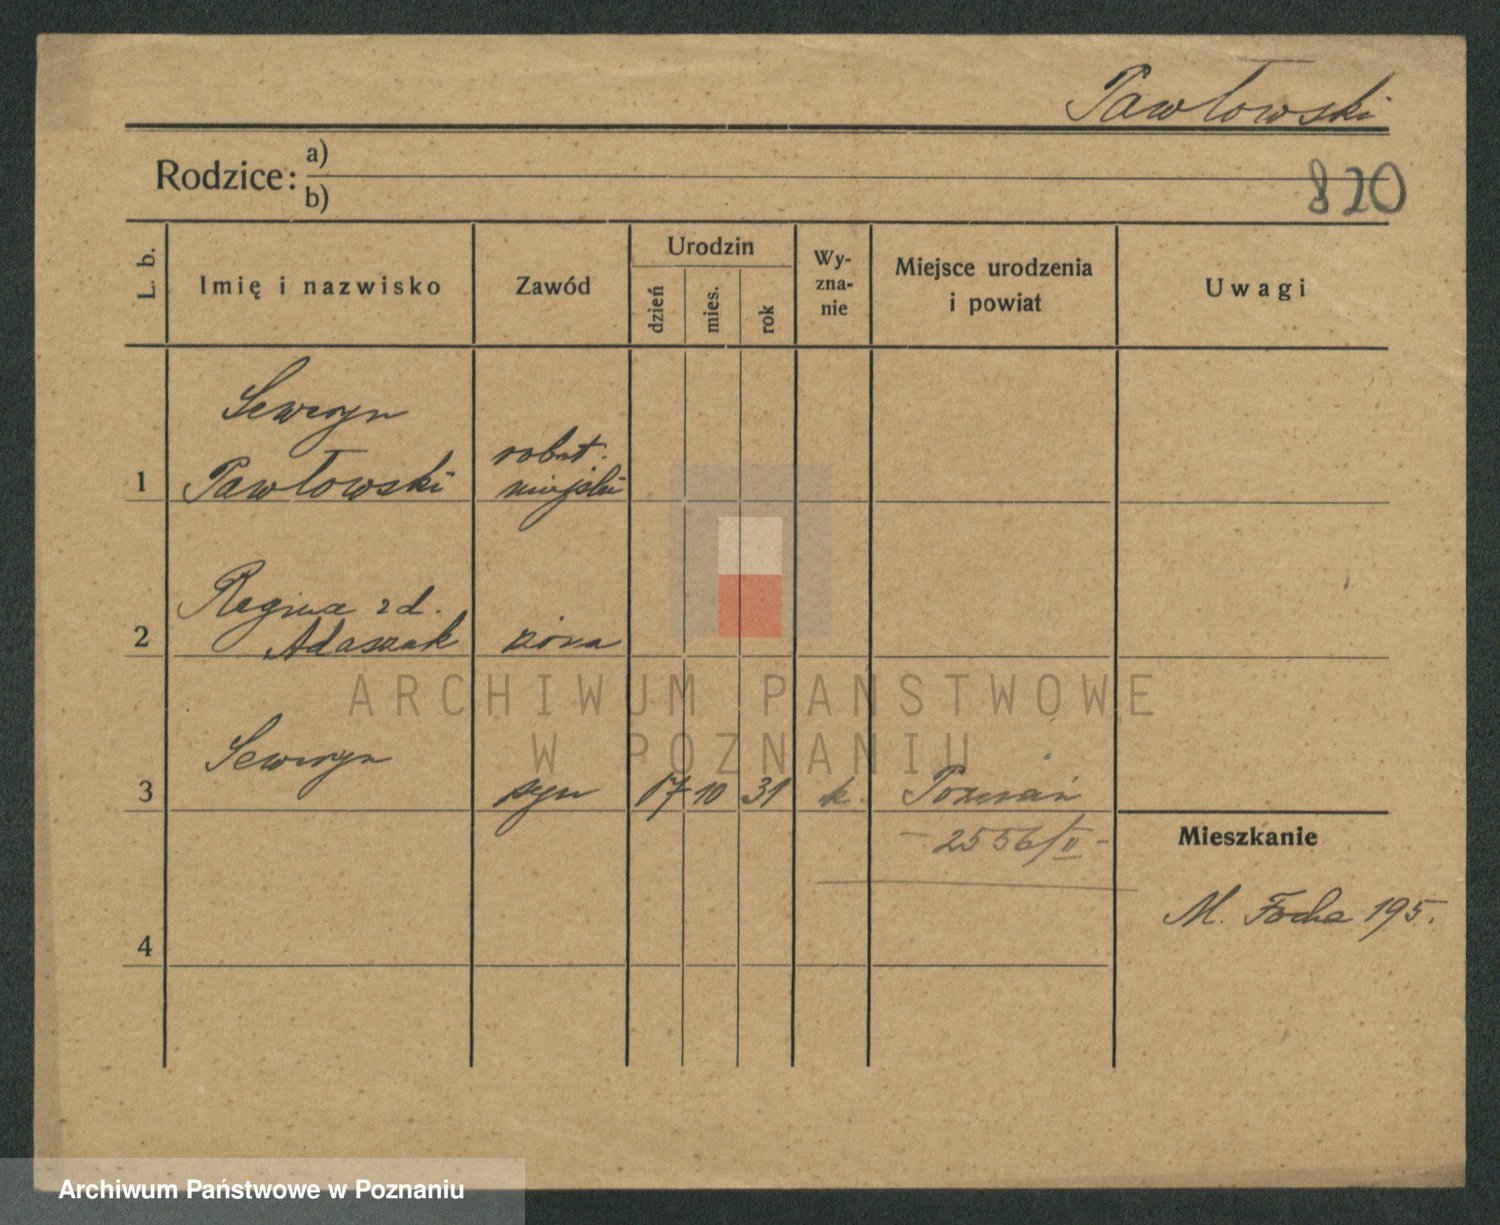 Pawłowski
Rodzice: a)
b)
820
L. b.
Imię i nazwisko
Zawód
Urodzin
dzień
mies.
rok
Wy-
zna-
nie
Miejsce urodzenia
i powiat
Uwagi
Seweryn
1 Pawłowski
robot.
miejski
Regina z d.
2 Adaszak żona
Seweryn
3 syn 17 10 31 k. Poznań
- 2556/II -
Mieszkanie
M. Focha 195.
4
ARCHIWUM PAŃSTWOWE
W POZNANIU
Archiwum Państwowe w Poznaniu